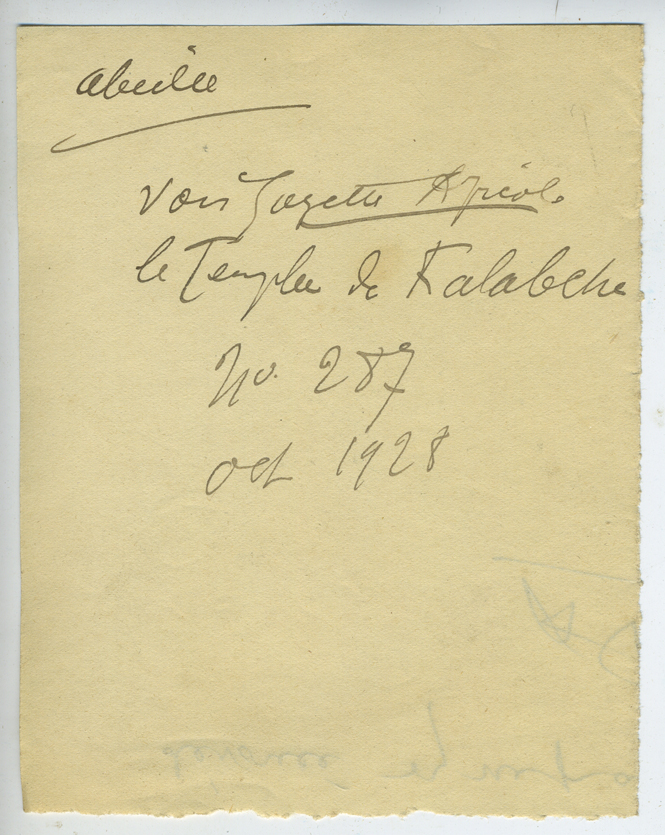 abeille
voir Gazette Apicole
le Temple de Kalabche
No. 287
oct 1928